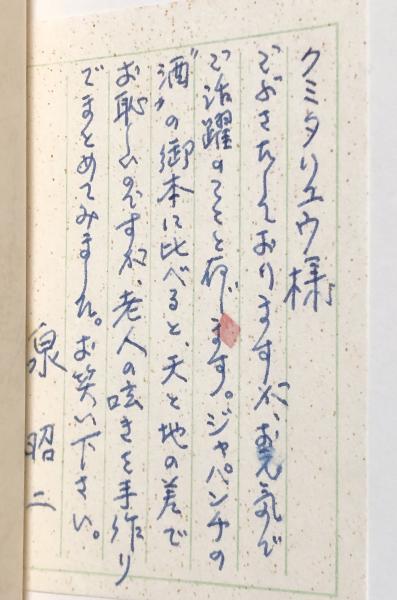 クミタリュウ様
ごぶさたしておりますが、お元気で
ご活躍のことと存じます。ジャパンチの
"酒"の御本に比べると、天と地の差で
お恥しいのですが、老人の呟きを手作り
でまとめてみました。お笑い下さい。
泉 昭二